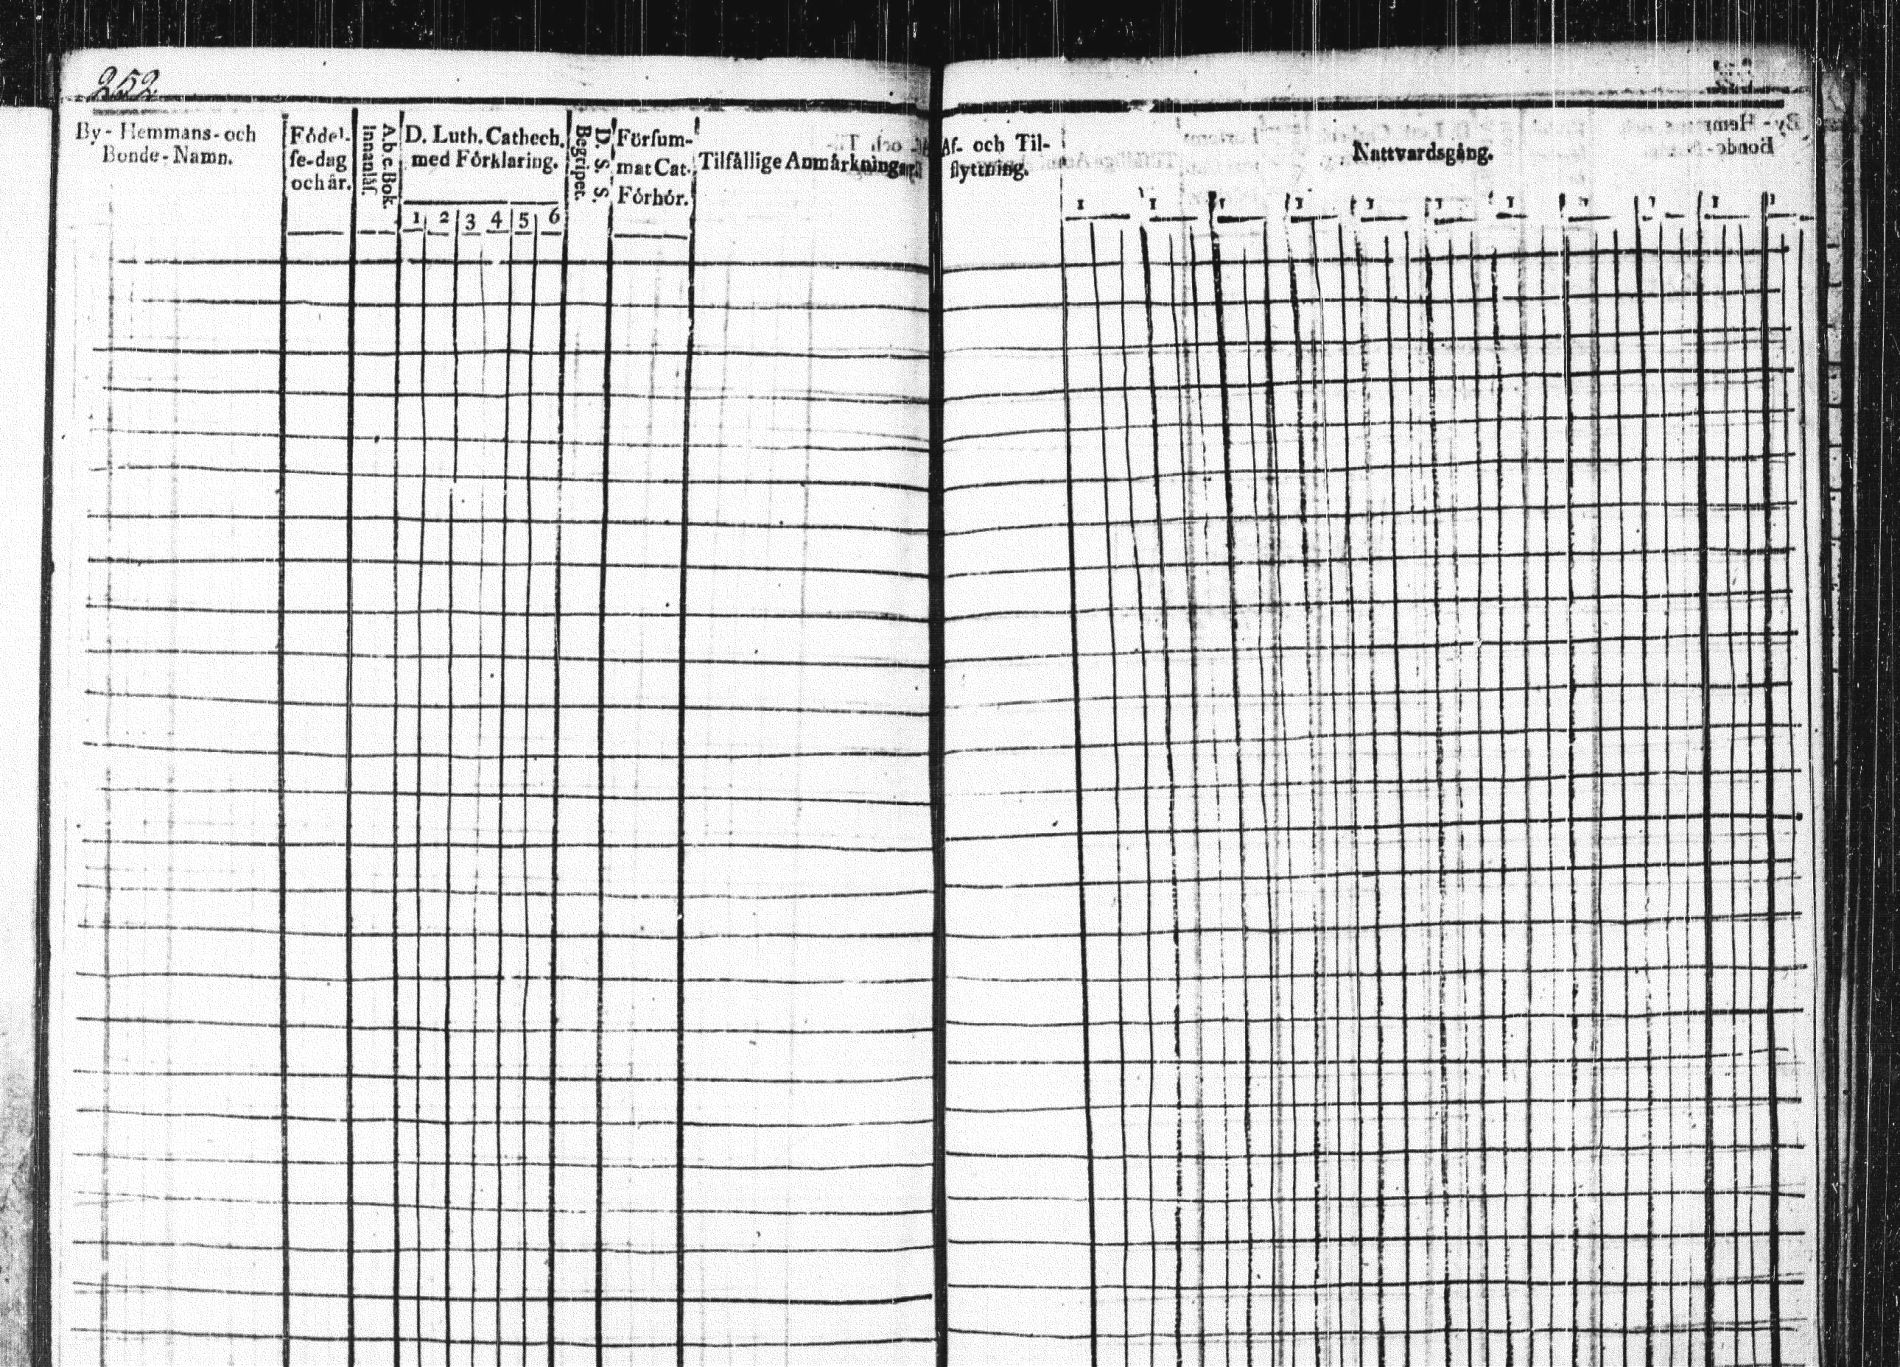 252
By- Hemmans- och
Bonde-Namn.
Födel-
se-dag
och år.
A b c Bok.
innanläs.
D. Luth. Cathech.
med Förklaring.
1 2 3 4 5 6
D. S. S.
Begripet.
Försum-
mat Cat.
Förhör.
Tilfällige Anmärkningar.
Af- och Til-
flyttning.
Nattvardsgång.
1 1 1 1 1 1 1 1 1 1 1